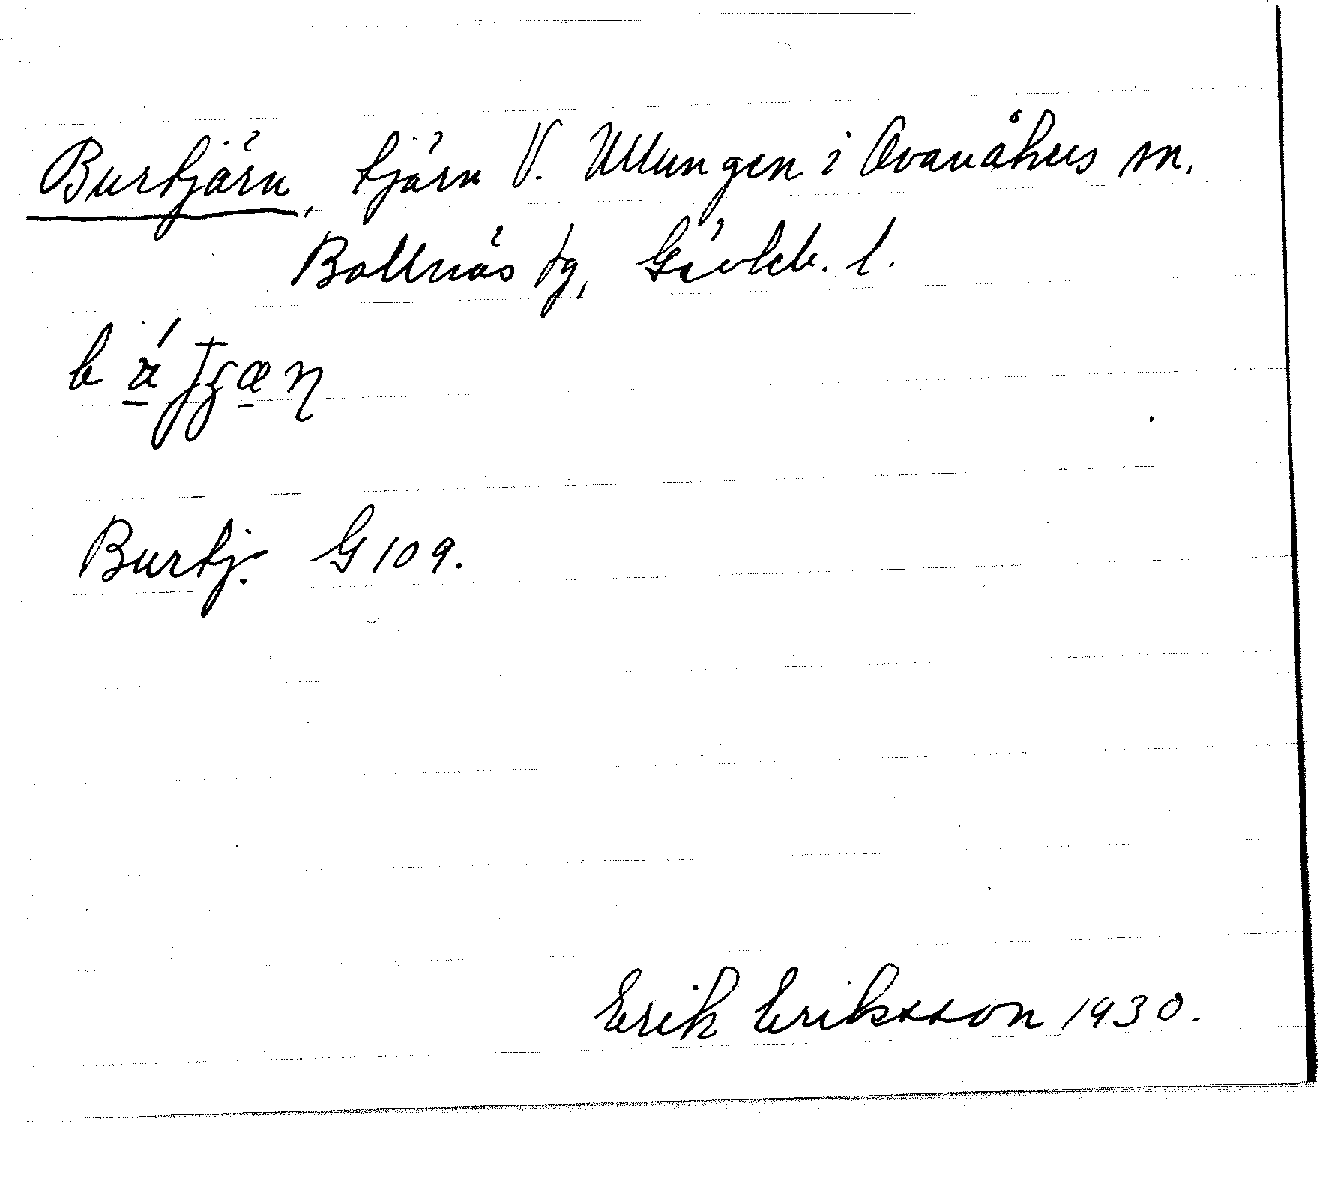 Burtjärn, tjärn V. Ullungen i Ovanåkers sn.
Bollnäs tg, Gävleb. l.
Burtj. G 109.
Erik Eriksson 1930.